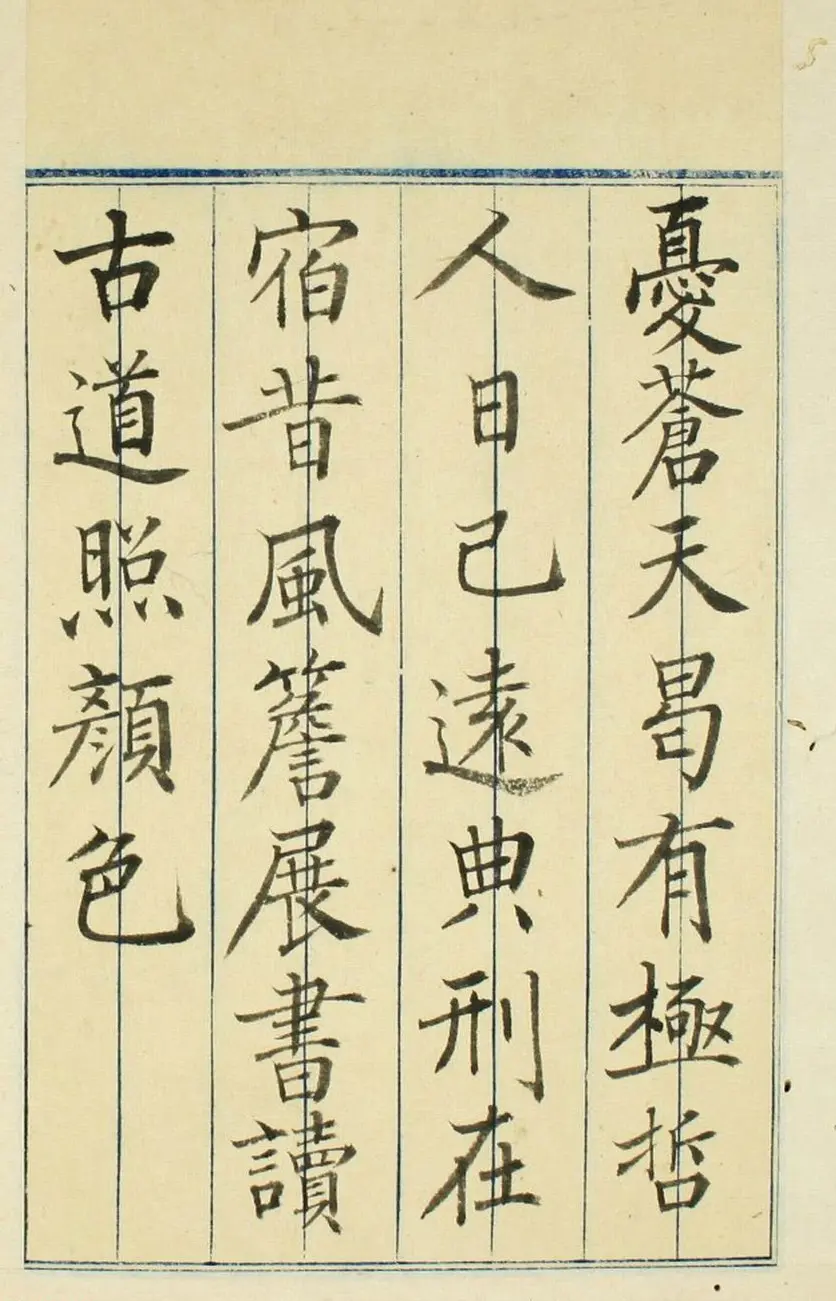 憂蒼天曷有極哲
人日已遠典刑在
宿昔風簷展書讀
古道照顏色